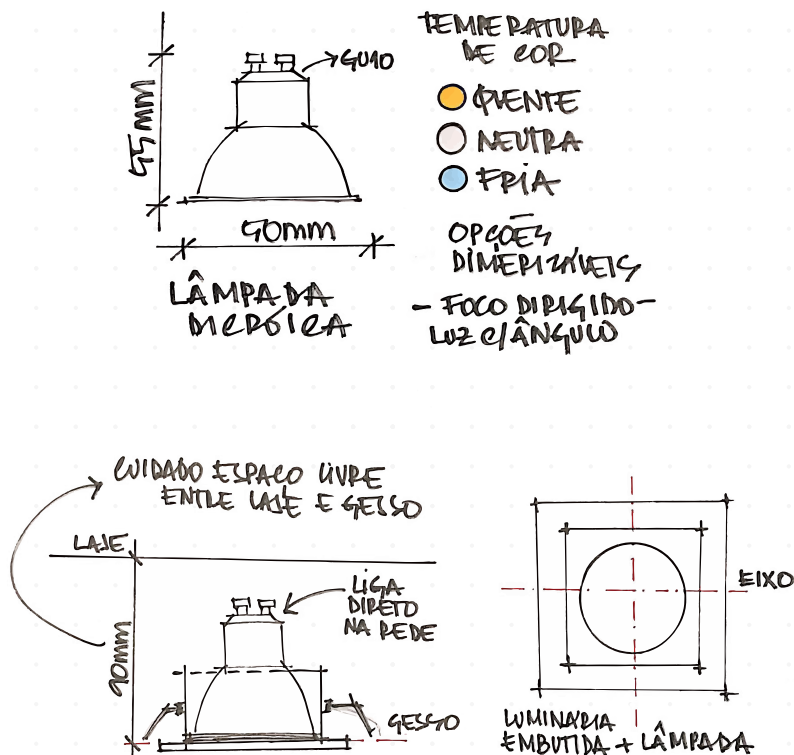 GU10
55mm
50mm
LÂMPADA
DICRÓICA
TEMPERATURA
DE COR
QUENTE
NEUTRA
FRIA
OPÇÕES
DIMERIZÁVEIS
- FOCO DIRIGIDO -
LUZ C/ ÂNGULO
CUIDADO ESPAÇO LIVRE
ENTRE LAJE E GESSO
LAJE
LIGA
DIRETO
NA REDE
90mm
GESSO
EIXO
LUMINÁRIA
EMBUTIDA + LÂMPADA